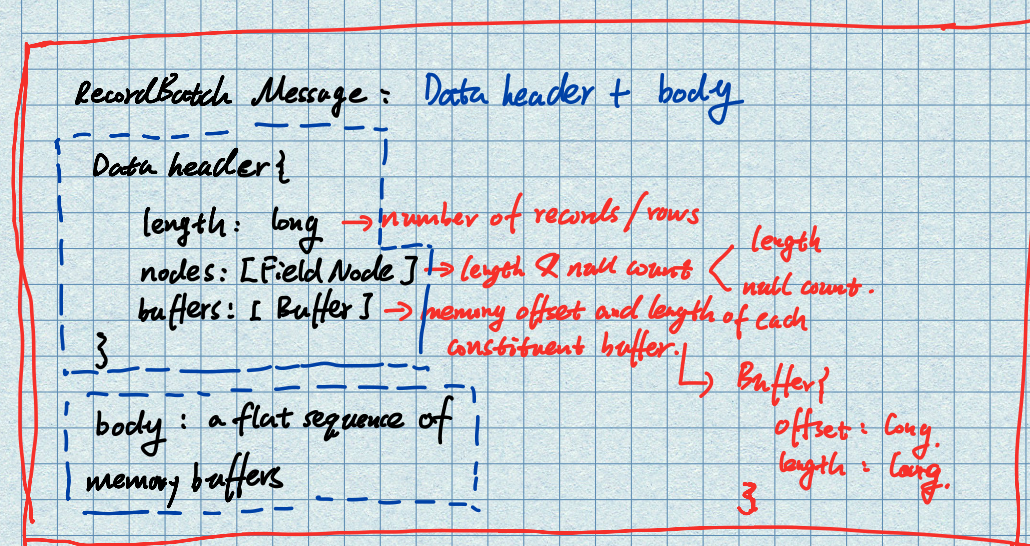 RecordBatch Message: Data header + body
Data header{
length: long → number of records/rows
nodes: [FieldNode] → length & null count < length
null count.
buffers: [Buffer] → memory offset and length of each
constituent buffer.
}
Buffer{
offset: long.
length: long.
}
body: a flat sequence of
memory buffers